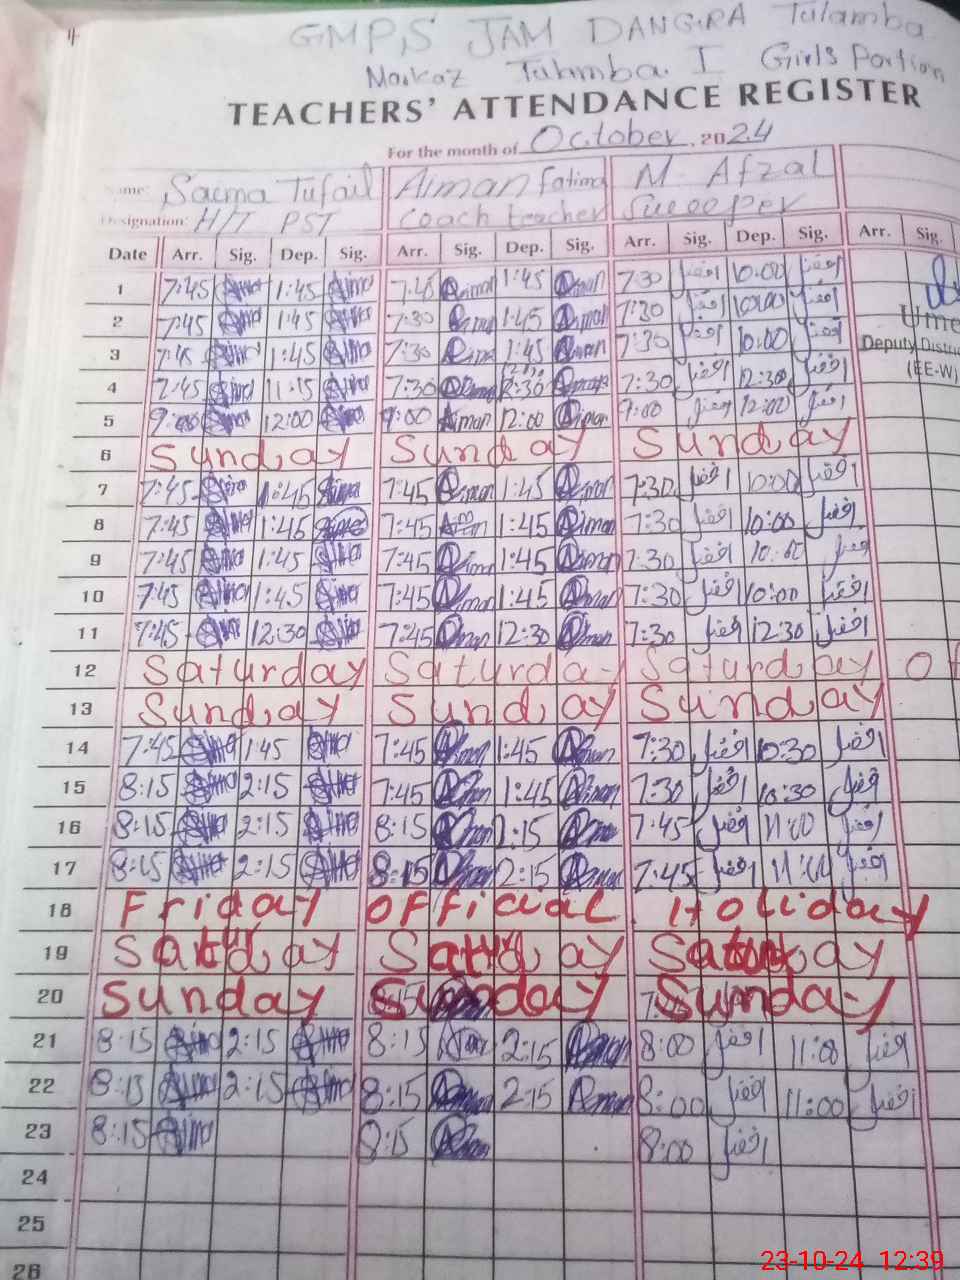 GMPS JAM DANGRA Tulamba
Markaz Tulamba I Girls Portion
TEACHERS' ATTENDANCE REGISTER
For the month of October. 2024
Name: Saima Tufail Aiman Fatima M Afzal
Designation: H/T PST Coach teacher Sweeper
Date Arr. Sig. Dep. Sig. Arr. Sig. Dep. Sig. Arr. Sig. Dep. Sig. Arr. Sig.
1 7:45 1:45 7:45 Aiman 1:45 Aiman 7:30 افضل 10:00 افضل
2 7:45 1:45 7:30 1:45 Aiman 7:30 افضل 10:00 افضل Ume
3 7:45 1:45 7:30 1:45 Aiman 7:30 افضل 10:00 افضل Deputy District
4 7:45 11:15 7:30 12:30 7:30 افضل 12:30 افضل (EE-W)
5 9:00 12:00 9:00 Aiman 12:00 Aiman 9:00 افضل 12:00 افضل
6 Sunday Sunday Sunday
7 7:45 1:45 7:45 Aiman 1:45 Aiman 7:30 افضل 10:00 افضل
8 7:45 1:45 7:45 1:45 Aiman 7:30 افضل 10:00 افضل
9 7:45 1:45 7:45 Aiman 1:45 Aiman 7:30 افضل 10:00 افضل
10 7:45 1:45 7:45 Aiman 1:45 Aiman 7:30 افضل 10:00 افضل
11 7:45 12:30 7:45 Aiman 12:30 Aiman 7:30 افضل 12:30 افضل
12 Saturday Saturday Saturday
13 Sunday Sunday Sunday
14 7:45 1:45 7:45 Aiman 1:45 Aiman 7:30 افضل 10:30 افضل
15 8:15 2:15 7:45 1:45 Aiman 7:30 افضل 10:30 افضل
16 8:15 2:15 8:15 2:15 7:45 افضل 11:00 افضل
17 8:15 2:15 8:15 2:15 Aiman 7:45 افضل 11:00 افضل
18 Friday Official Holiday
19 Saturday Saturday Saturday
20 Sunday Sunday Sunday
21 8:15 2:15 8:15 2:15 Aiman 8:00 افضل 11:00 افضل
22 8:15 2:15 8:15 Aiman 2:15 Aiman 8:00 افضل 11:00 افضل
23 8:15 8:15 8:00 افضل
24
25
26
23-10-24 12:39